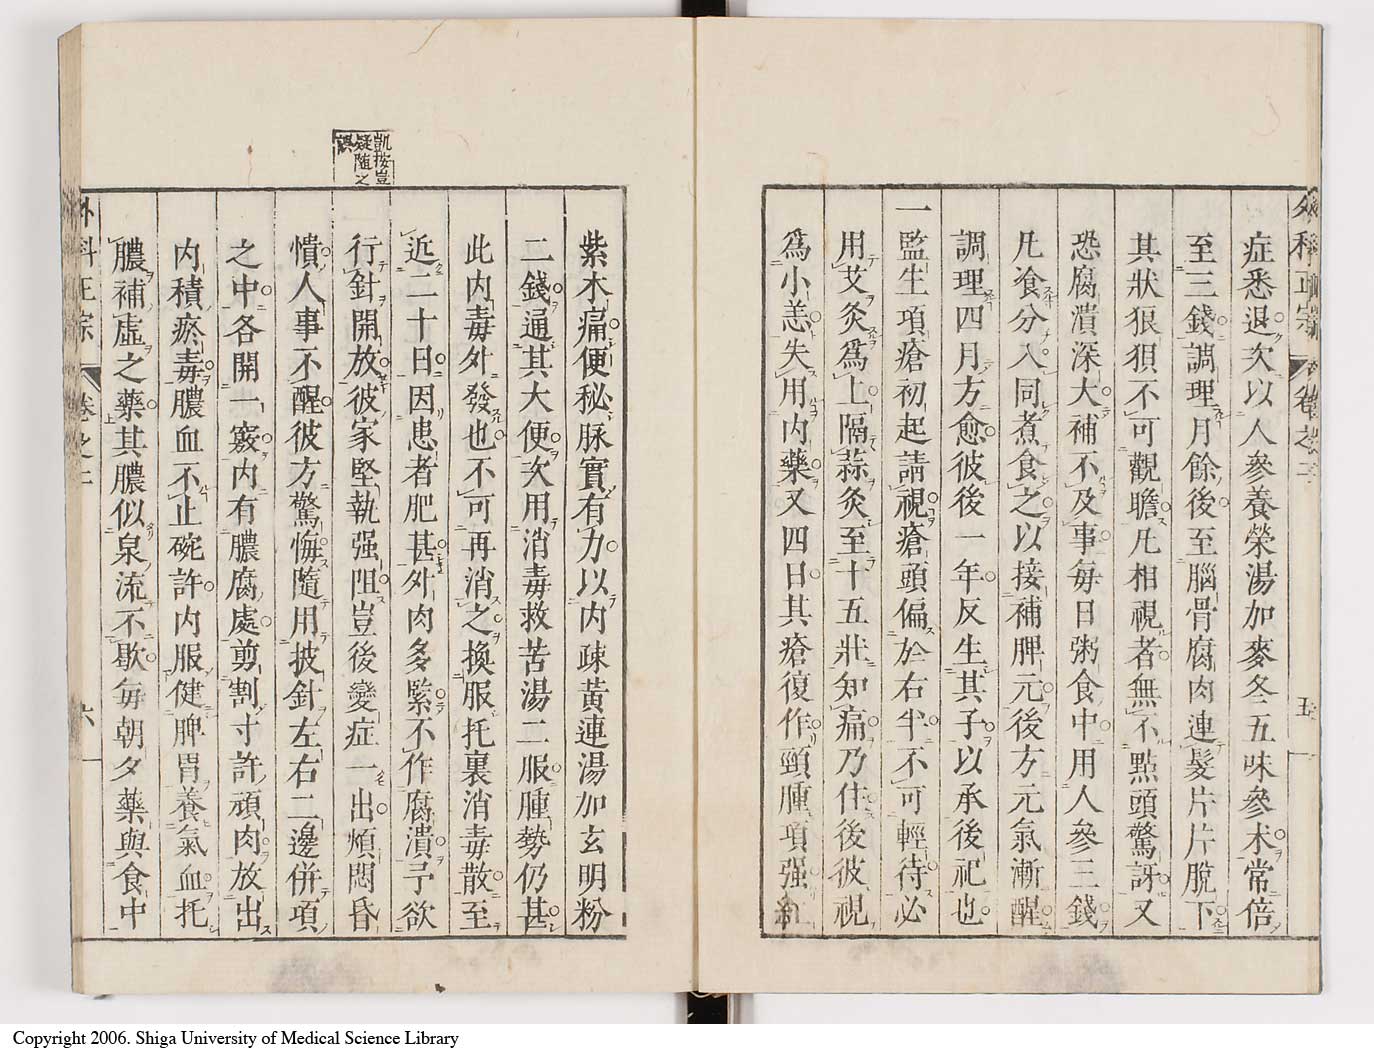 外科正宗 卷之二 五
症悉退次以人參養榮湯加麥冬五味參朮常倍
至三錢調理月餘後至腦骨腐肉連髮片片脫下
其狀狼狽不可觀瞻凡相視者無不點頭驚訝又
恐腐潰深大補不及事每日粥食中用人參三錢
凡飡分入同煮食之以接補脾元後方元氣漸醒
調理四月方愈彼後一年反生其子以承後祀也
一監生項瘡初起請視瘡頭偏於右半不可輕待必
用艾灸爲上隔蒜灸至十五壯知痛乃住後彼視
爲小恙失用內藥又四日其瘡復作頸腫項强紅
紫木痛便秘脉實有力以内疎黃連湯加玄明粉
二錢通其大便次用消毒救苦湯二服腫勢仍甚
此内毒外發也不可再消之換服托裏消毒散至
近二十日因患者肥甚外肉多緊不作腐潰予欲
行針開放彼家堅執强阻豈後變症一出煩悶昏
憒人事不醒彼方驚悔隨用披針左右二邊併項
之中各開一竅内有膿腐處剪割寸許頑肉放出
内積瘀毒膿血不止碗許内服健脾胃養氣血托
膿補虛之藥其膿似泉流不歇每朝夕藥與食中
外科正宗 卷之二 六
凱按豈
疑隨之
誤
Copyright 2006. Shiga University of Medical Science Library